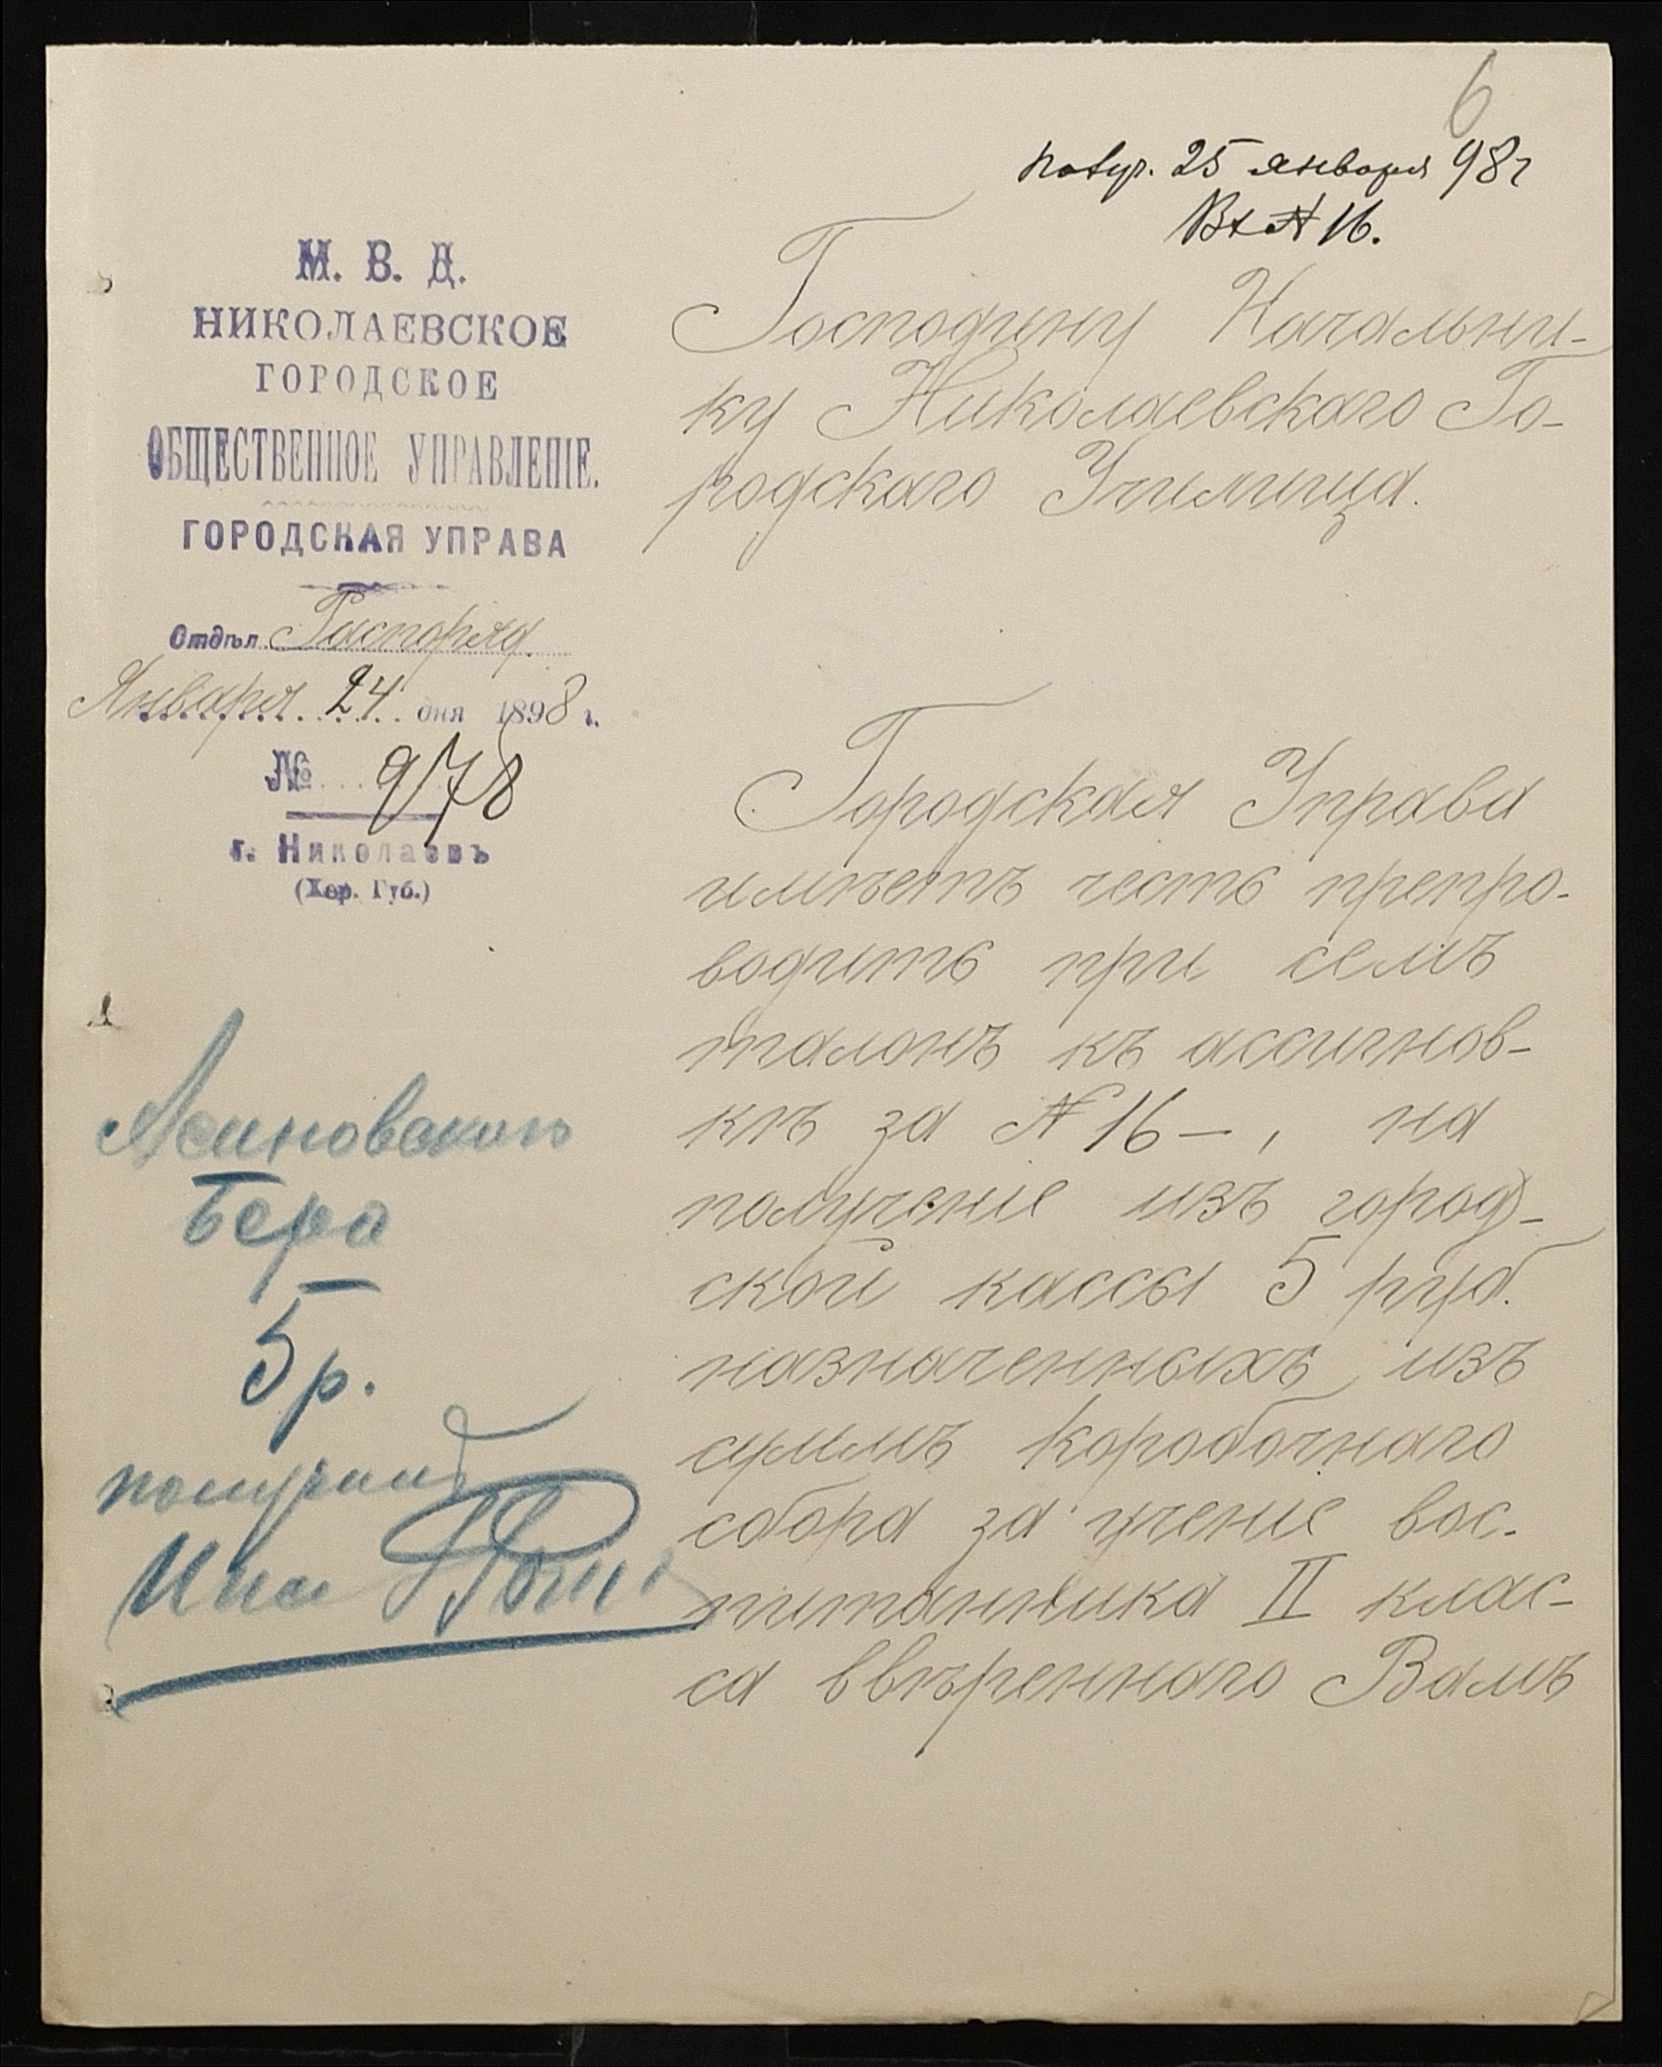 6
получ. 25 января 98 г
Вх № 16.
М. В. Д.
НИКОЛАЕВСКОЕ
ГОРОДСКОЕ
ОБЩЕСТВЕННОЕ УПРАВЛЕНІЕ.
ГОРОДСКАЯ УПРАВА
Отдѣл Распоряд.
Января 24 дня 1898 г.
№ 978
г. Николаевъ
(Хер. Губ.)
Господину Начальни-
ку Николаевскаго Го-
родскаго Училища.
Городская Управа
имѣетъ честь препро-
водить при семъ
талонъ къ ассигнов-
кѣ за № 16 —, на
получение изъ город-
ской кассы 5 руб.
назначенныхъ изъ
суммъ коробочнаго
сбора за учение вос-
питанника II клас-
са ввѣреннаго Вамъ
Ясиновского
Бера
5 р.
получилъ